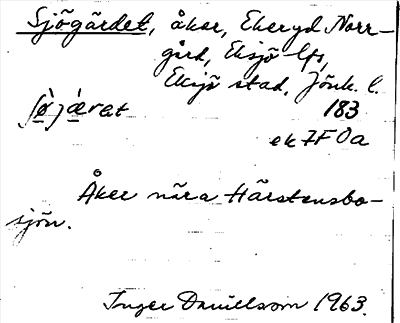 Sjögärdet, åker, Ekeryd Norr-
gård, Eksjö lfs,
Eksjö stad, Jönk. l.
183
ek 7F 0a
Åker nära Härstensbo-
sjön.
Inger Danielsson 1963.